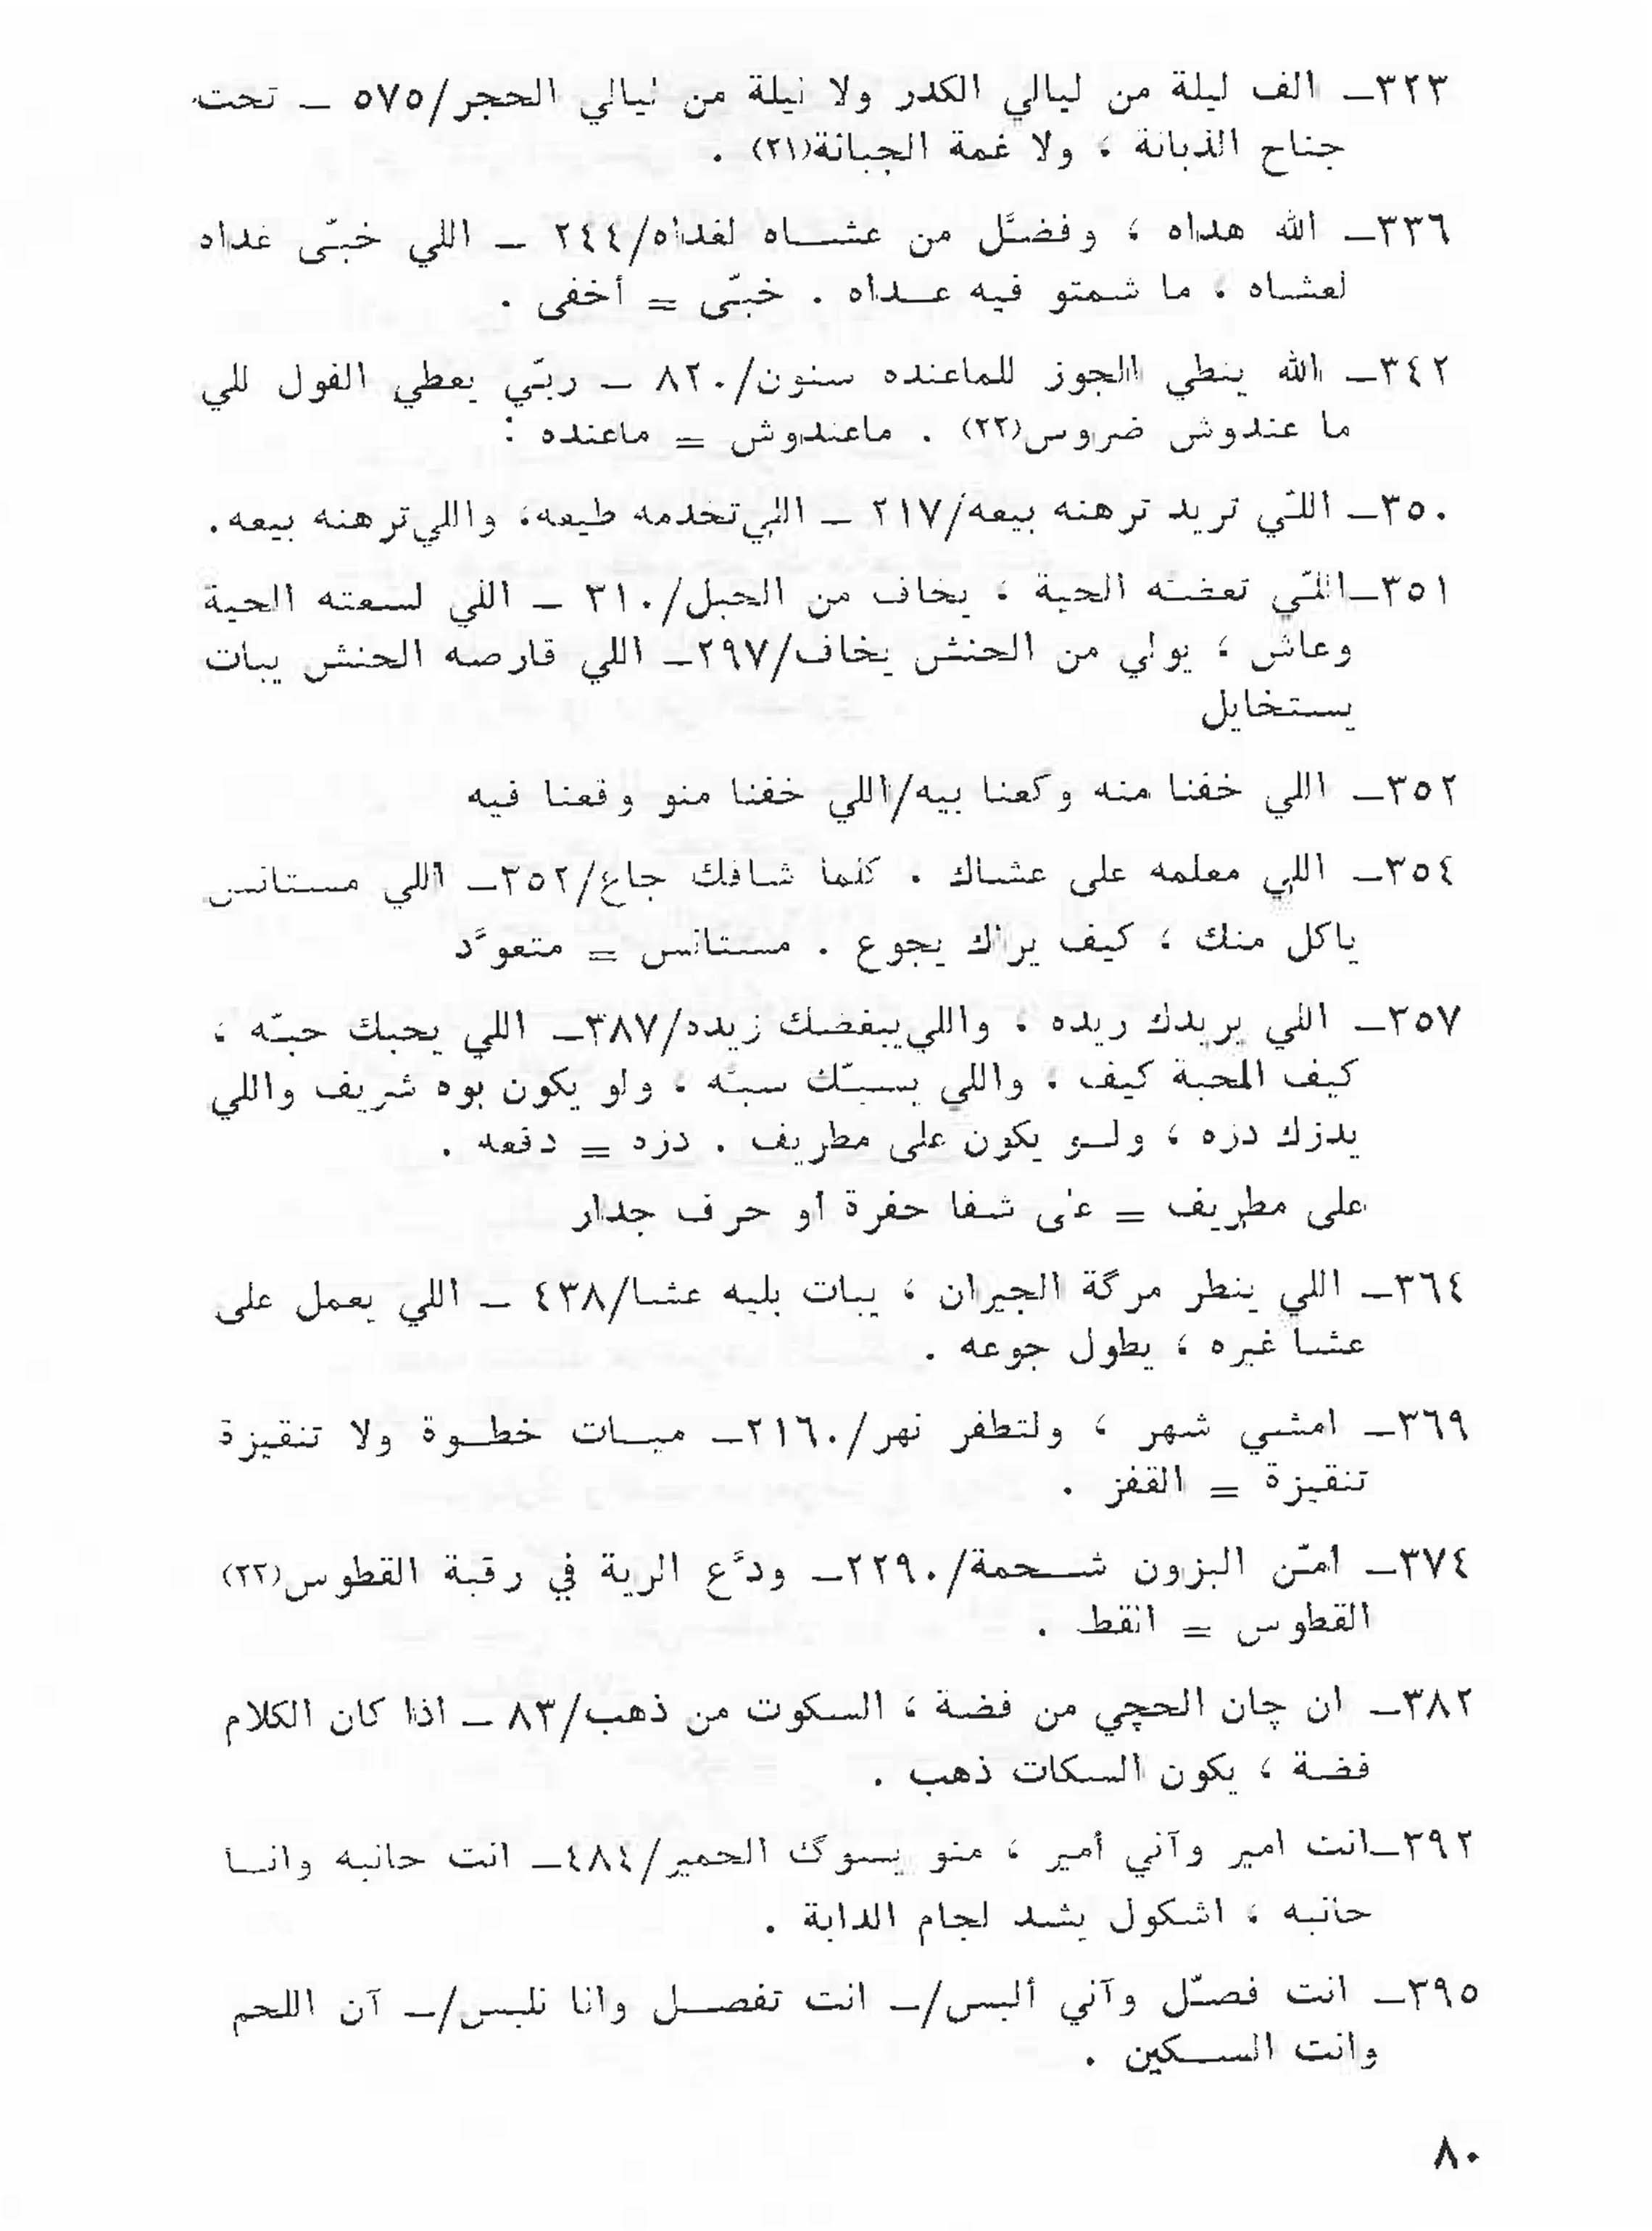 ٣٢٣ـ الف ليلة من ليالي الكدر ولا ليلة من ليالي الحجر/٥٧٥ ـ تحت
جناح الذبانة ، ولا غمة الجبانة(٢١) .
٣٣٦ـ الله هداه ، وفضّل من عشاه لغداه/٢٤٤ ـ اللي خبّى غداه
لعشاه ، ما شمتو فيه عداه . خبّى = أخفى .
٣٤٢ـ الله ينطي الجوز للماعنده سنون/٨٢٠ ـ ربّي يعطي الفول للي
ما عندوش ضروس(٢٢) . ماعندوش = ماعنده :
٣٥٠ـ اللّي تريد ترهنه بيعه/٢١٧ ـ اللي تخدمه طيعه، واللي ترهنه بيعه.
٣٥١ـ اللّي تعضه الحية ، يخاف من الحبل/٣١٠ ـ اللي لسعته الحية
وعاش ، يولي من الحنش يخاف/٢٩٧ـ اللي قارصه الحنش يبات
يستخايل
٣٥٢ـ اللي خفنا منه وكعنا بيه/اللي خفنا منو وقعنا فيه
٣٥٤ـ اللي معلمه على عشاك . كلما شافك جاع/٣٥٢ـ اللي مستانس
ياكل منك ، كيف يراك يجوع . مستانس = متعوّد
٣٥٧ـ اللي يريدك ريده ، واللي يبغضك زيده/٣٨٧ـ اللي يحبك حبّه ،
كيف المحبة كيف ، واللي يسبّك سبّه ، ولو يكون بوه شريف واللي
يدزك دزه ، ولو يكون على مطريف . دزه = دفعه .
على مطريف = على شفا حفرة أو حرف جدار
٣٦٤ـ اللي ينطر مرگة الجيران ، يبات بليه عشا/٤٣٨ ـ اللي يعمل على
عشا غيره ، يطول جوعه .
٣٦٩ـ امشي شهر ، ولتطفر نهر/٢١٦٠ـ ميات خطوة ولا تنقيزة
تنقيزة = القفز .
٣٧٤ـ امّن البزون شحمة/٢٢٩٠ـ ودّع الرية في رقبة القطوس(٢٢)
القطوس = القط .
٣٨٢ـ ان چان الحچي من فضة ، السكوت من ذهب/٨٣ ـ اذا كان الكلام
فضة ، يكون السكات ذهب .
٣٩٢ـ انت امير وآني أمير ، منو يسوگ الحمير/٤٨٤ـ انت حانبه وانا
حانبه ، اشكول يشد لجام الدابة .
٣٩٥ـ انت فصّل وآني ألبس/ـ انت تفصل وانا نلبس/ـ آن اللحم
وانت السكين .
٨٠